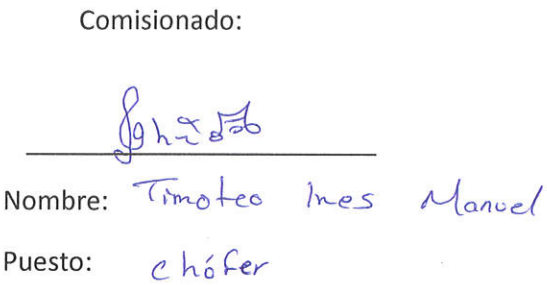 Comisionado:
Nombre: Timoteo Ines Manuel
Puesto: chófer